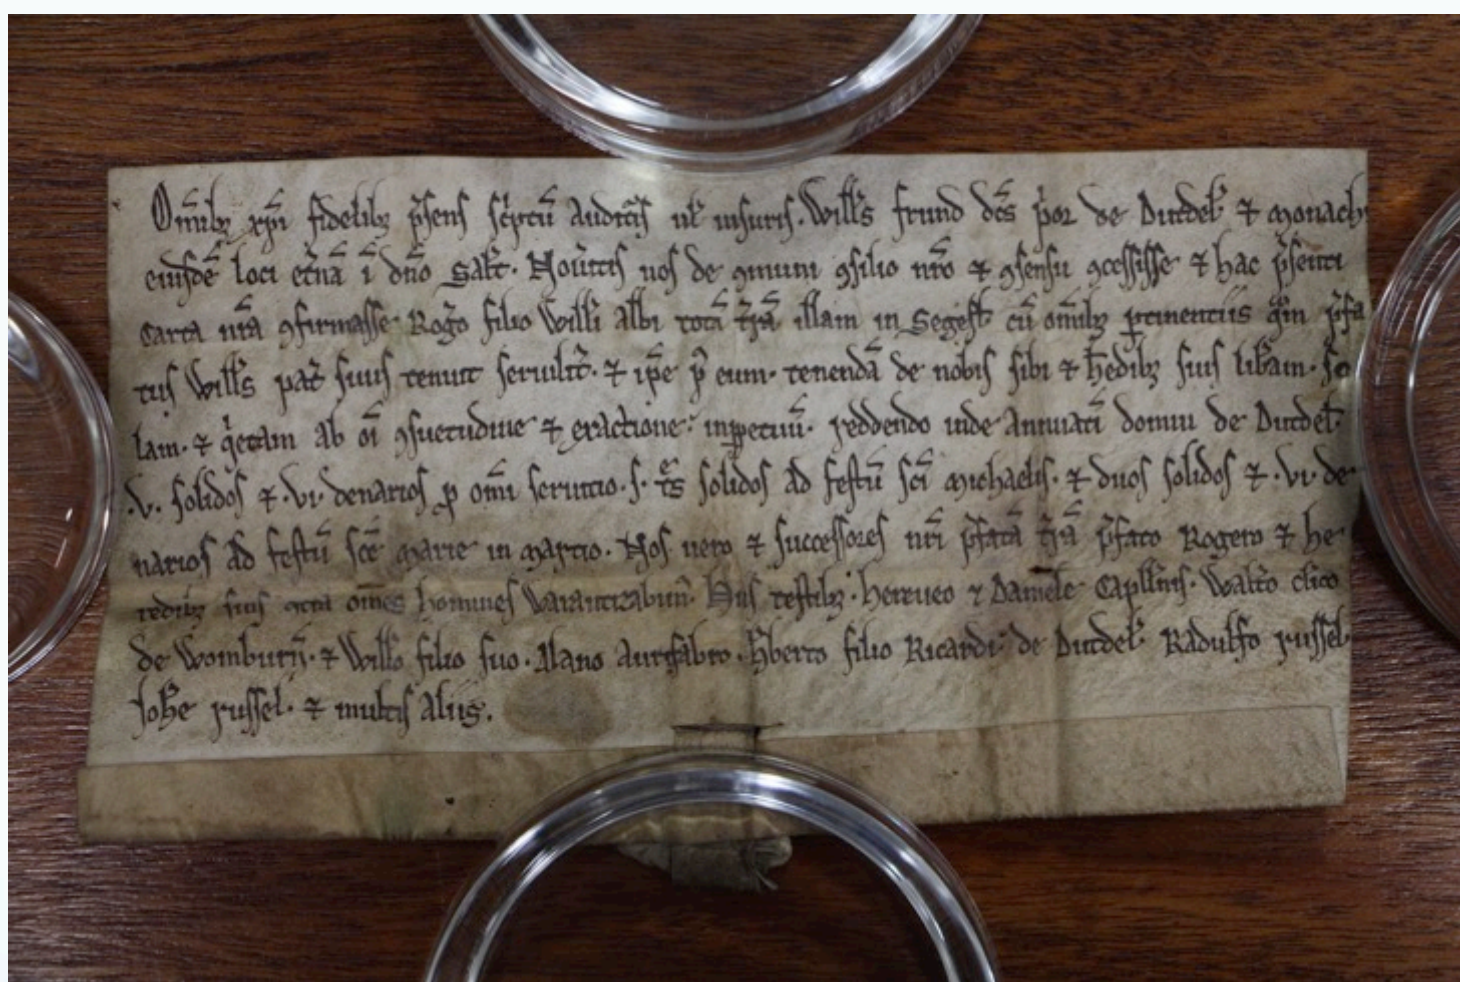 Om̄ib; xp̄i fidelib; p̃sens sc̃ptū auditͥis ul̃ uisuris. Will's frund dc̄s p̃or de Dudel̃ ⁊ monachi
eiusdē loci et̃nā ī dn̄o Salt̃. Nou̾itis nos de ꝯmuni ꝯsilio nr̄o ⁊ ꝯsensu ꝯcessisse ⁊ hac p̃senti
carta nr̄a ꝯfirmasse Rog̃o filio Will'i albi totā t̃rā illam in Segesl̃ cū om̄ib; ꝑtinentiis qͣm p̃fa
tus Will's pat̃ suus tenuit seruilit̃. ⁊ ip̄e p̃ eum. tenendā de nobis sibi ⁊ h̃edib; suis lib̃am. so
lam. ⁊ qͥetam ab oī ꝯsuetudine ⁊ exactione. inꝑpetuū. reddendo inde annuatī domui de Dudel̃.
.v. solidos ⁊ .vi. denarios ꝓ om̄i seruitio. s. tͤs solidos ad festū sc̄i michaelis. ⁊ duos solidos ⁊ .vi. de
narios ad festū sc̄e marie in martio. Nos uero ⁊ successores nr̄i p̃fatā t̃rā p̃fato Rogero ⁊ he
redib; suis ꝯtra om̄es homines Warantizabim̾. Hiis testib;. herueo ⁊ Daniele Capll'nis. Walt̃o cl'ico
de Womburn̄. ⁊ Will'o filio suo. Alano aurifabro. h̃berto filio Ricardi de Dudel̃. Radulfo russel.
Joh̃e russel. ⁊ multis aliis.